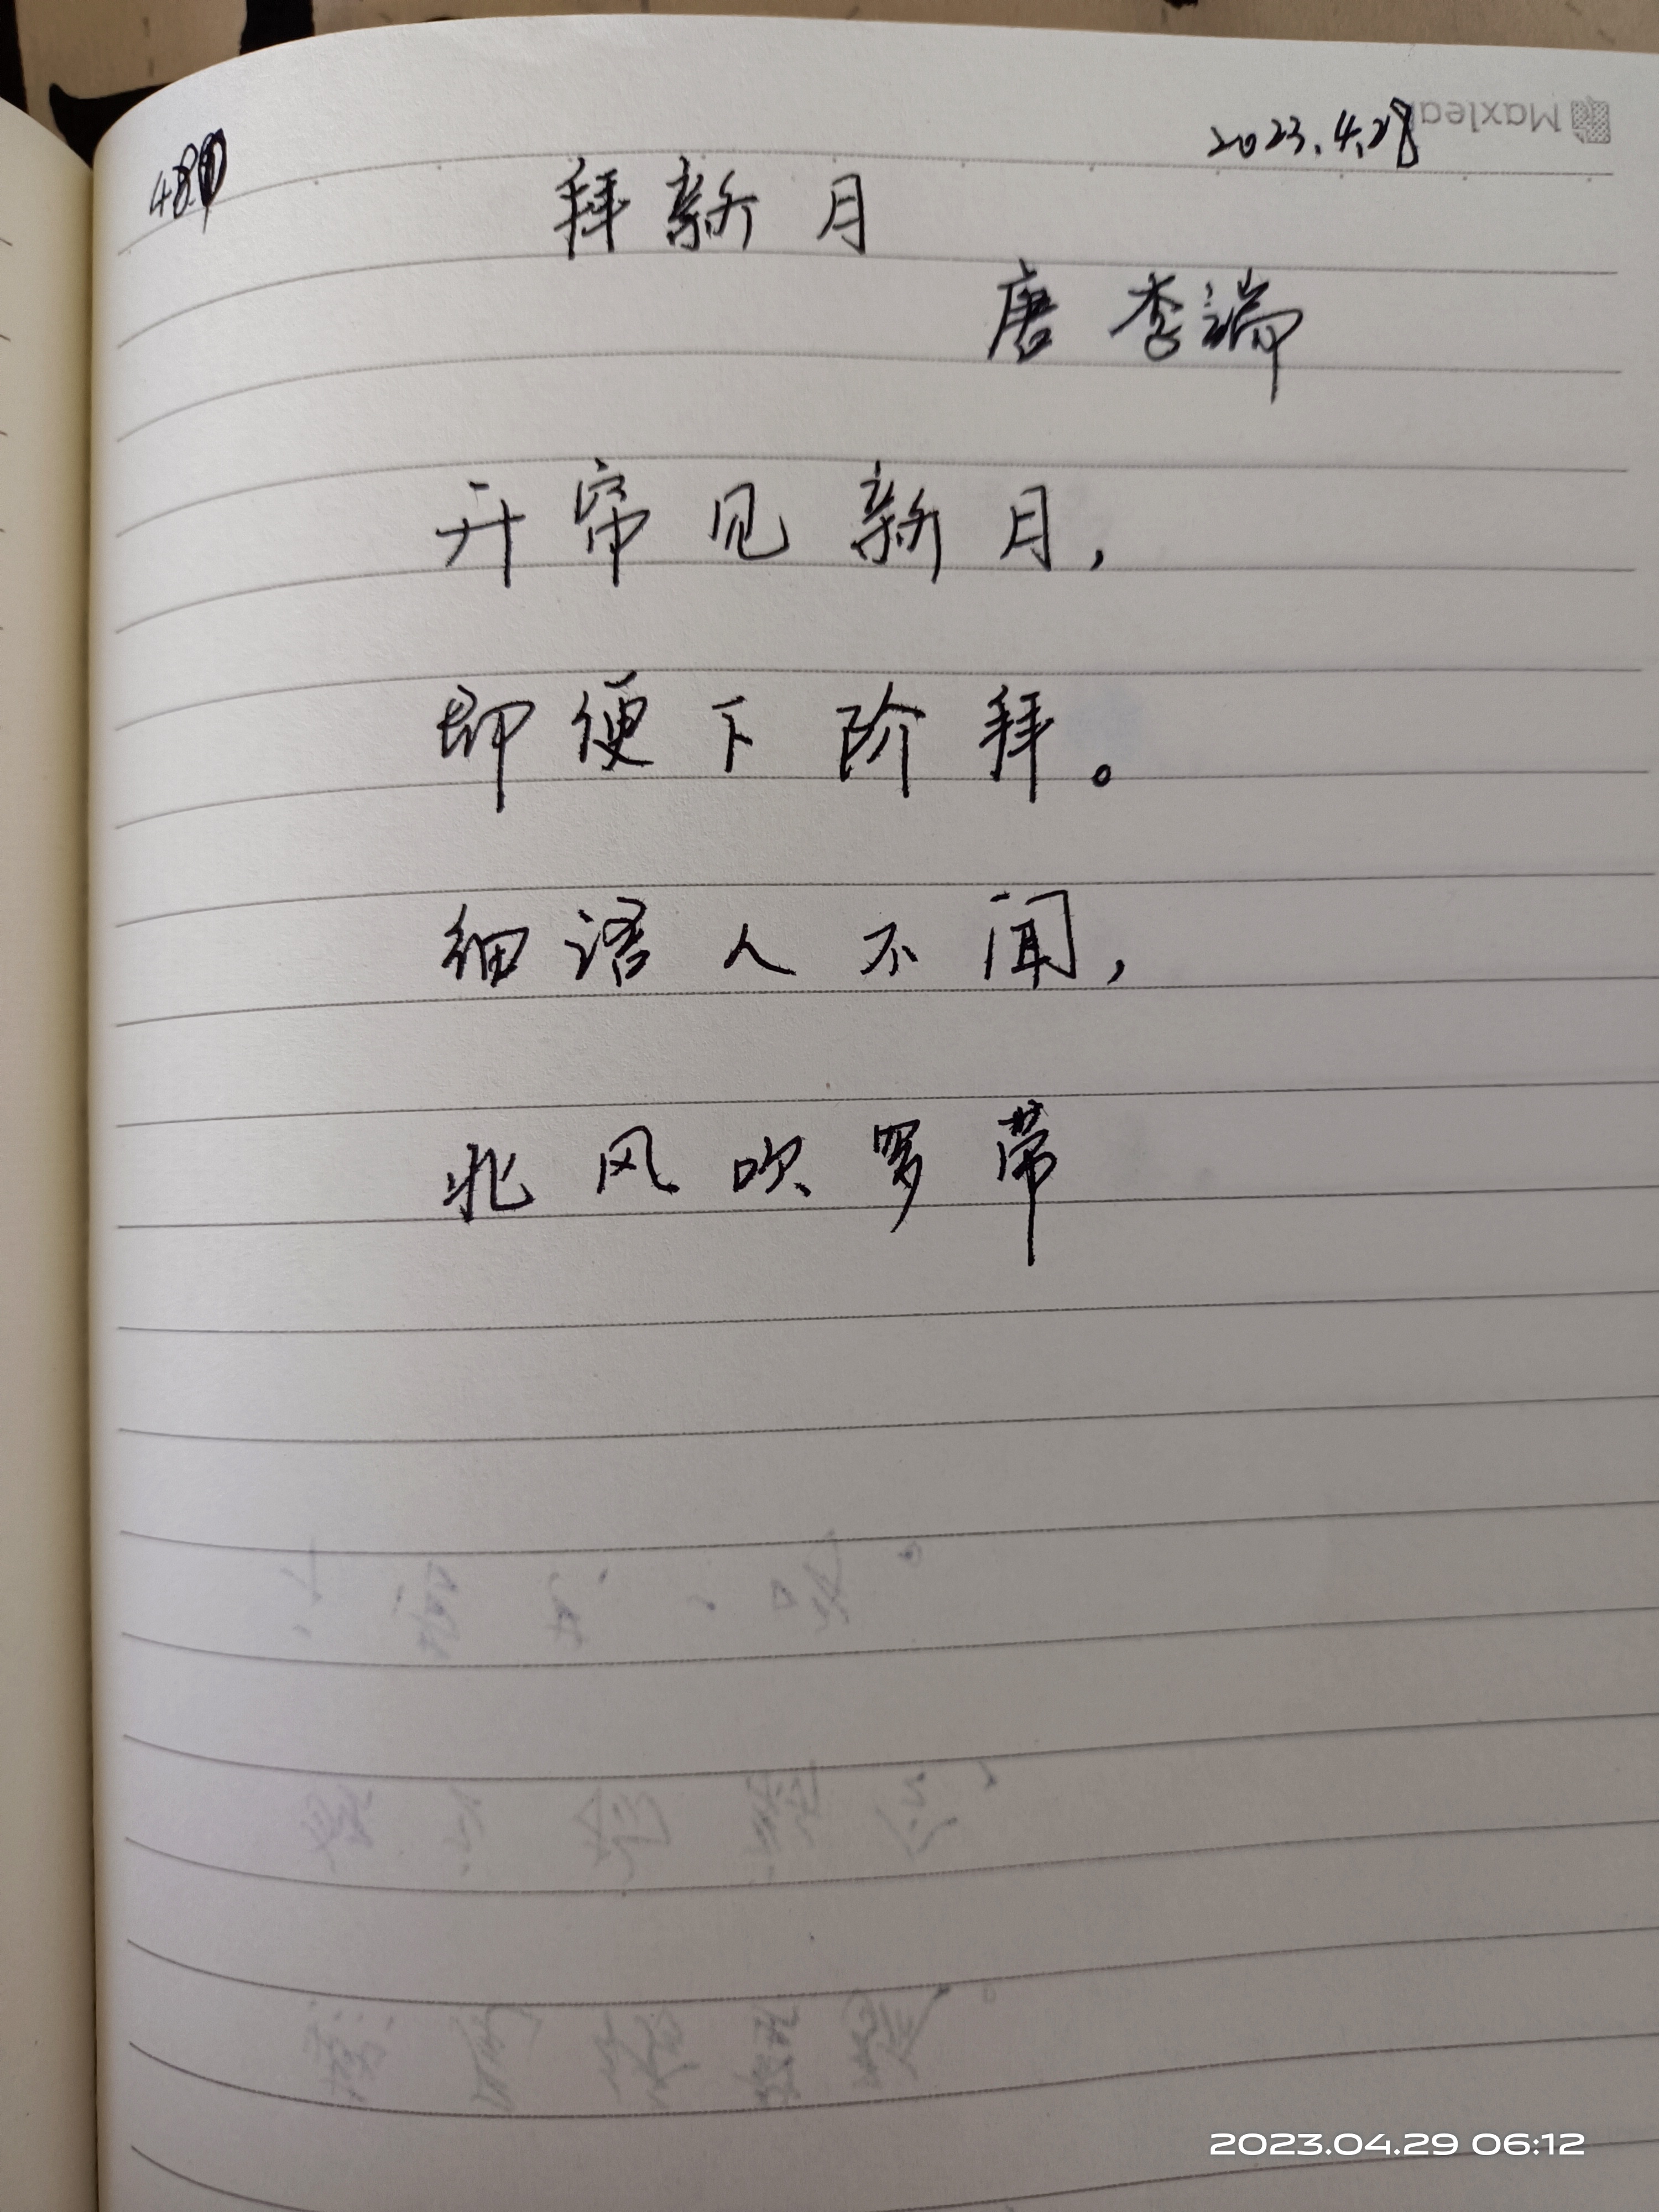 2023.4.28
拜新月
唐 李端
开帘见新月,
即便下阶拜。
细语人不闻,
北风吹罗带
2023.04.29 06:12